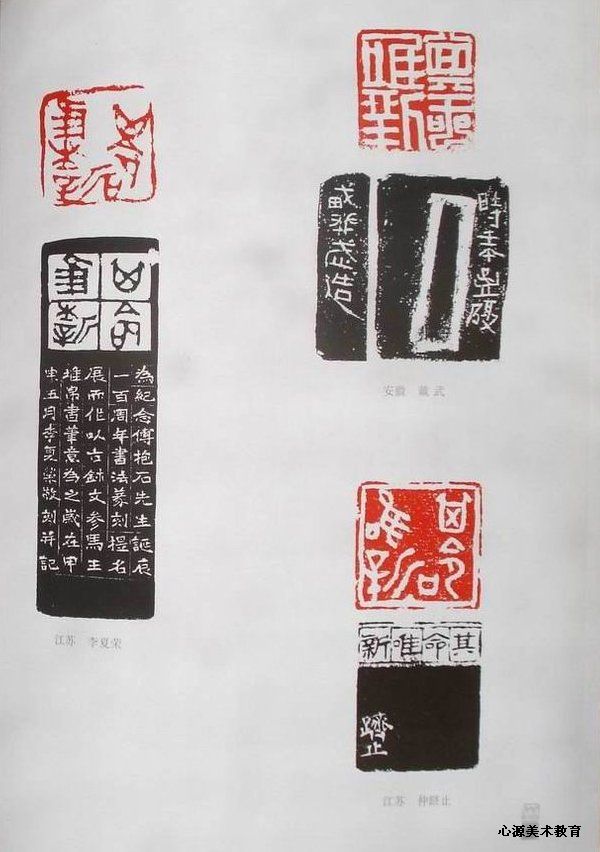 其命唯新
為紀念傅抱石先生誕辰
一百周年書法篆刻提名
展而作以古鉨文参馬王
堆帛書筆意為之歲在甲
申五月李夏榮敬刻并記
江苏 李夏荣
安徽 戴武
其命唯新
其命唯新
躋止
江苏 仲跻止
心源美术教育